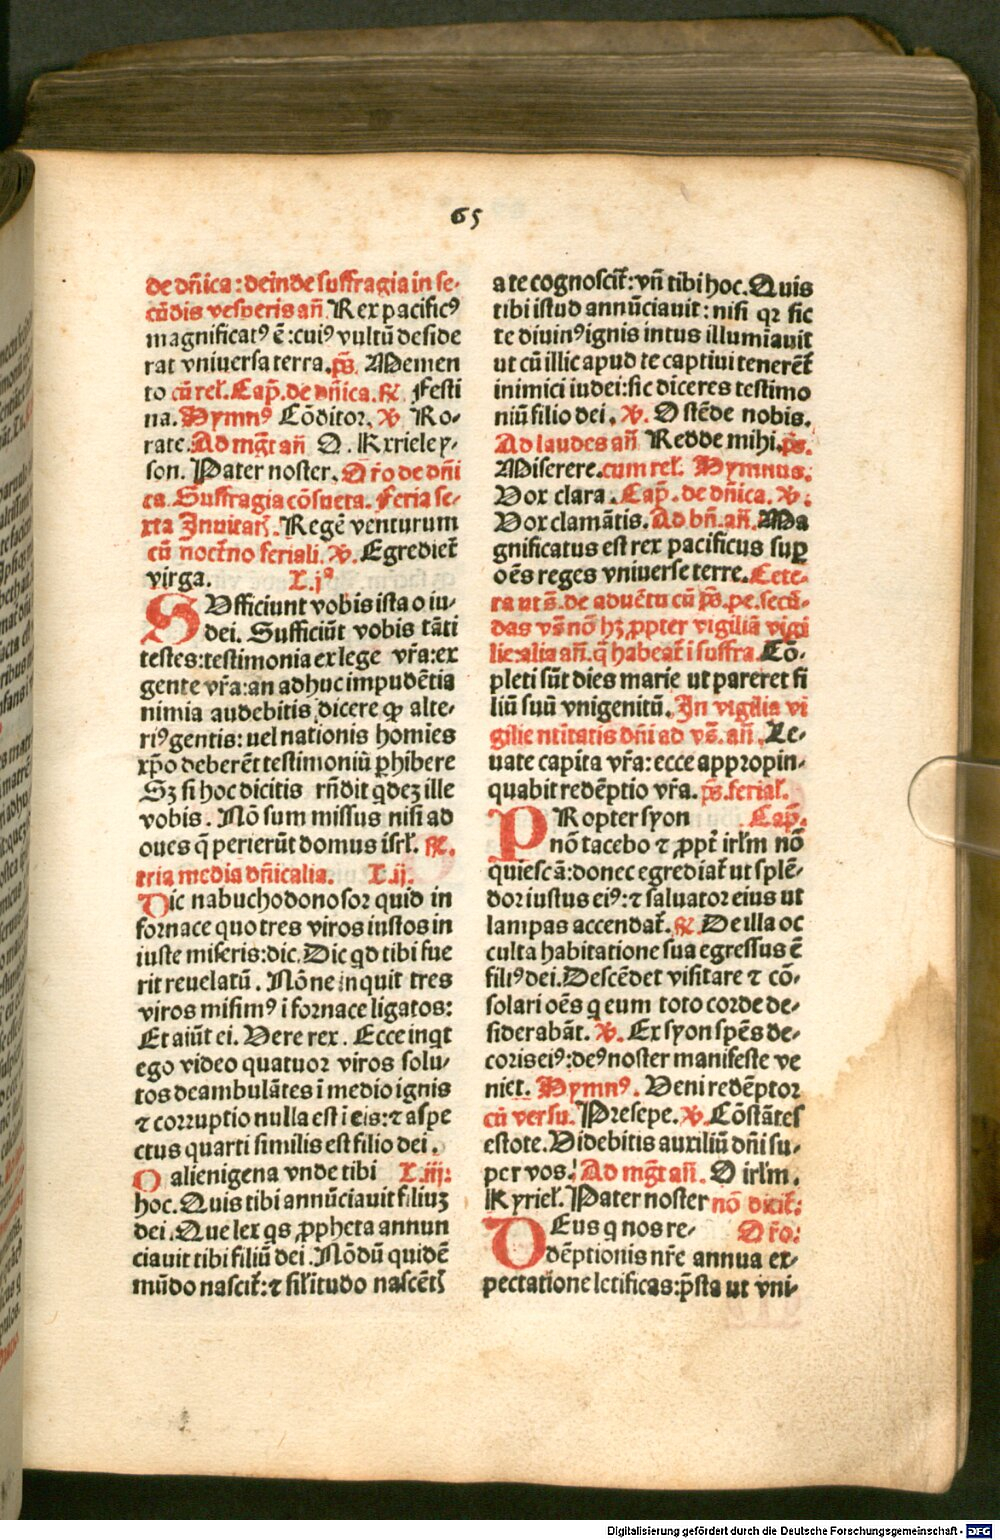 65
de dn̄ica: deinde suffragia in se-
cūdis vesperis an̄ Rex pacificꝰ
magnificatꝰ ē: cuiꝰ vultū deside
rat vniuersa terra. p̄s. Memen
to cū rel'. Cap. de dn̄ica. ꝶ. Festi
na. Hymnꝰ Cōditor. ꝟ Ro-
rate. Ad mgt̄ an̄ O. Kyrieley-
son. Pater noster. Or̄o de dn̄i
ca. Suffragia cōsueta. Feria se-
xta Inuitat̄. Regē venturum
cū noct̄no feriali. ꝟ. Egrediet̄
virga. L. jᵒ
SVfficiunt vobis ista o iu-
dei. Sufficiūt vobis tāti
testes: testimonia ex lege vr̄a: ex
gente vr̄a: an adhuc impudētia
nimia audebitis dicere ꝙ alte-
riꝰ gentis: uel nationis homies
xp̄o deberēt testimoniū ꝑhibere
Sꝫ si hoc dicitis rn̄dit qdeꝫ ille
vobis. Nō sum missus nisi ad
oues q̄ perierūt domus isrl'. ꝶ.
tria media dn̄icalia. L. ij.
Dic nabuchodonosor quid in
fornace quo tres viros iustos in
iuste miseris: dic. Dic qd tibi fue
rit reuelatū. Nōne inquit tres
viros misimꝰ i fornace ligatos:
Et aiūt ei. Vere rex. Ecce inqt
ego video quatuor viros solu-
tos deambulātes i medio ignis
⁊ corruptio nulla est i eis: ⁊ aspe
ctus quarti similis est filio dei.
O alienigena vnde tibi L. iij:
hoc. Quis tibi annūciauit filiuꝫ
dei. Que lex qs ꝓpheta annun
ciauit tibi filiū dei. Nōdū quidē
mūdo nascit̄: ⁊ sil'itudo nascēt̄
a te cognoscit̄: vn̄ tibi hoc. Quis
tibi istud annūciauit: nisi qꝛ sic
te diuinꝰ ignis intus illumiauit
ut cū illic apud te captiui tenerēt
inimici iudei: sic diceres testimo
niū filio dei. ꝟ. Ostēde nobis.
Ad laudes an̄ Redde mihi. p̄s.
Miserere. cum rel'. Hymnus.
Vox clara. Cap. de dn̄ica. ꝟ:
Vox clamātis. Ad bn̄. an̄. Ma
gnificatus est rex pacificus suꝑ
oēs reges vniuerse terre. Cete-
ra ut s̄. de aduētu cū p̄s. pe. secū-
das vs̄ nō hꝫ ꝓpter vigiliā vigi
lie: alia an̄. q̄ habeat̄ i suffra. Cō-
pleti sūt dies marie ut pareret fi
liū suū vnigenitū. In vigilia vi
gilie nt̄itatis dn̄i ad vs̄. an̄. Le-
uate capita vr̄a: ecce appropin-
quabit redēptio vr̄a. p̄s. ferial'.
PRopter syon Cap.
nō tacebo ⁊ ꝓpt̄ irl'm nō
quiescā: donec egrediat̄ ut splē-
dor iustus eiꝰ: ⁊ saluator eius ut
lampas accendat̄. ꝶ De illa oc
culta habitatione sua egressus ē
filiꝰ dei. Descēdet visitare ⁊ cō-
solari oēs q eum toto corde de-
siderabāt. ꝟ. Ex syon sp̄ēs de-
coris eiꝰ: deꝰ noster manifeste ve
niet. Hymnꝰ. Veni redēptor
cū versu. Presepe. ꝟ. Cōstātes
estote. Videbitis auxiliū dn̄i su-
per vos. Ad mgt̄ an̄. O irl'm.
Kyriel'. Pater noster nō dicit̄:
DEus q nos re- Or̄o:
dēptionis nr̄e annua ex-
pectatione letificas: p̄sta ut vni-
Digitalisierung gefördert durch die Deutsche Forschungsgemeinschaft - DFG